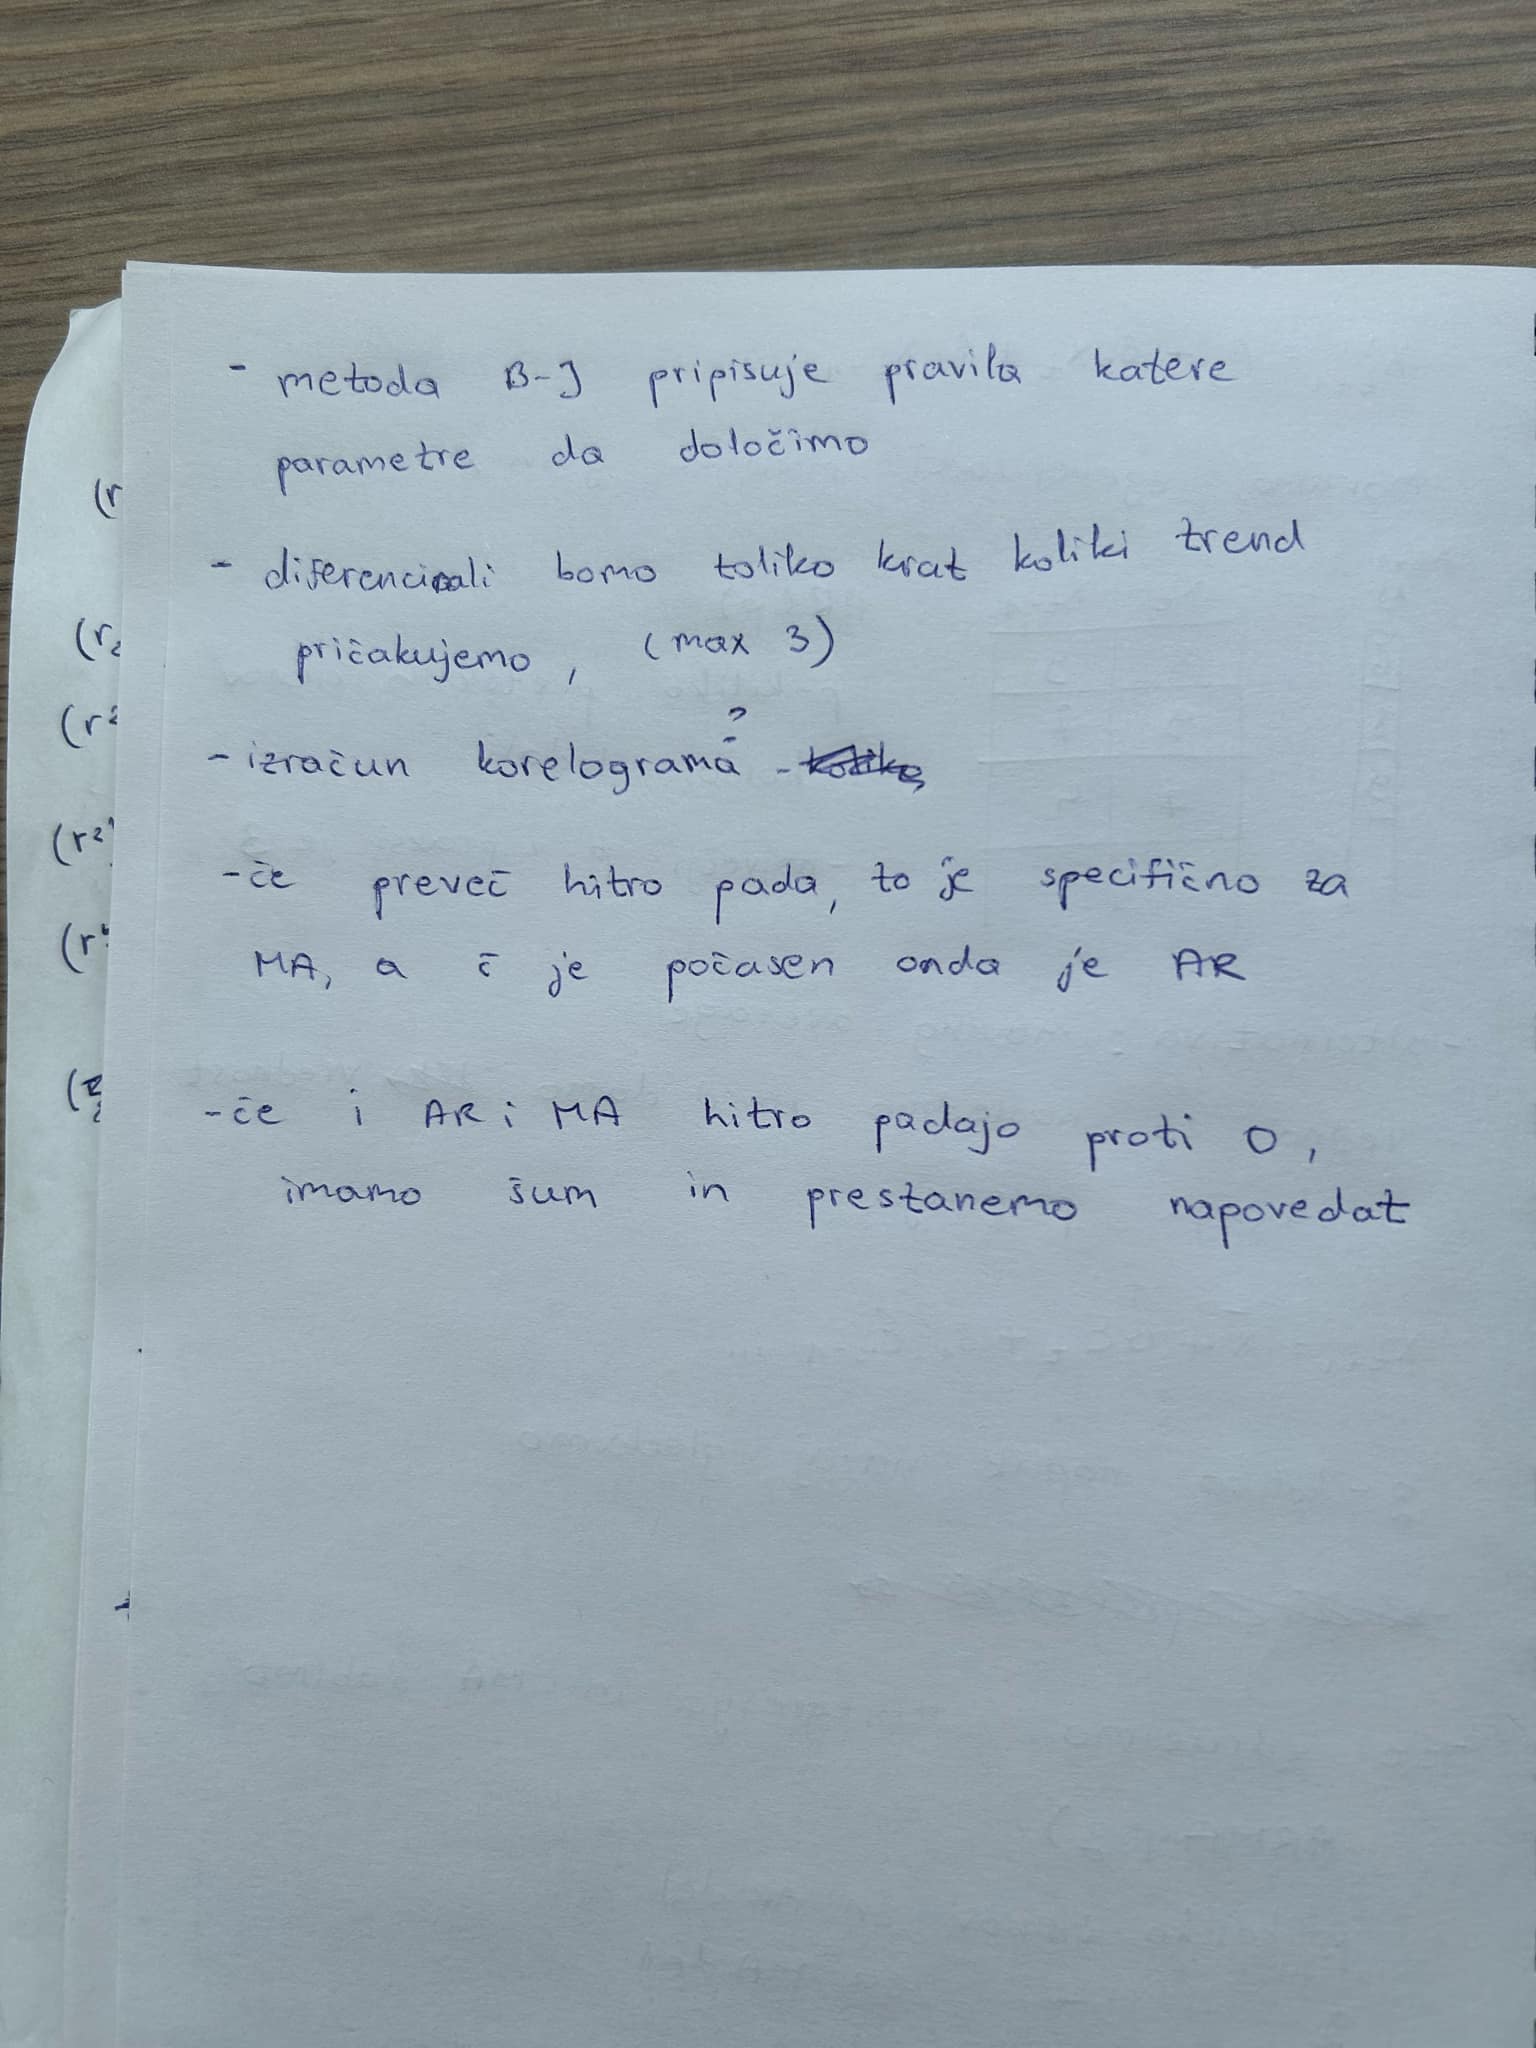 - metoda B-J pripisuje pravila katere
parametre da določimo
- diferencirali bomo toliko krat koliki trend
pričakujemo, (max 3)
- izračun korelograma ? -
- če preveč hitro pada, to je specifično za
MA, a č je počasen onda je AR
- če i AR i MA hitro padajo proti 0,
imamo šum in prestanemo napovedat